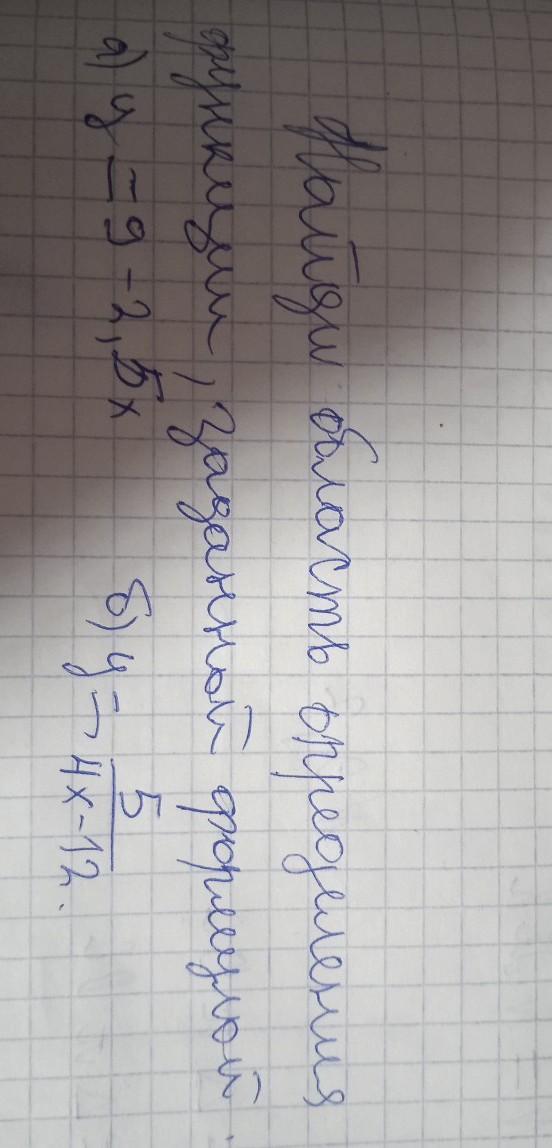 Найти область определения
функции, заданной формулой.
а) y = 9 - 2,5x б) y = \frac{5}{4x-12}.